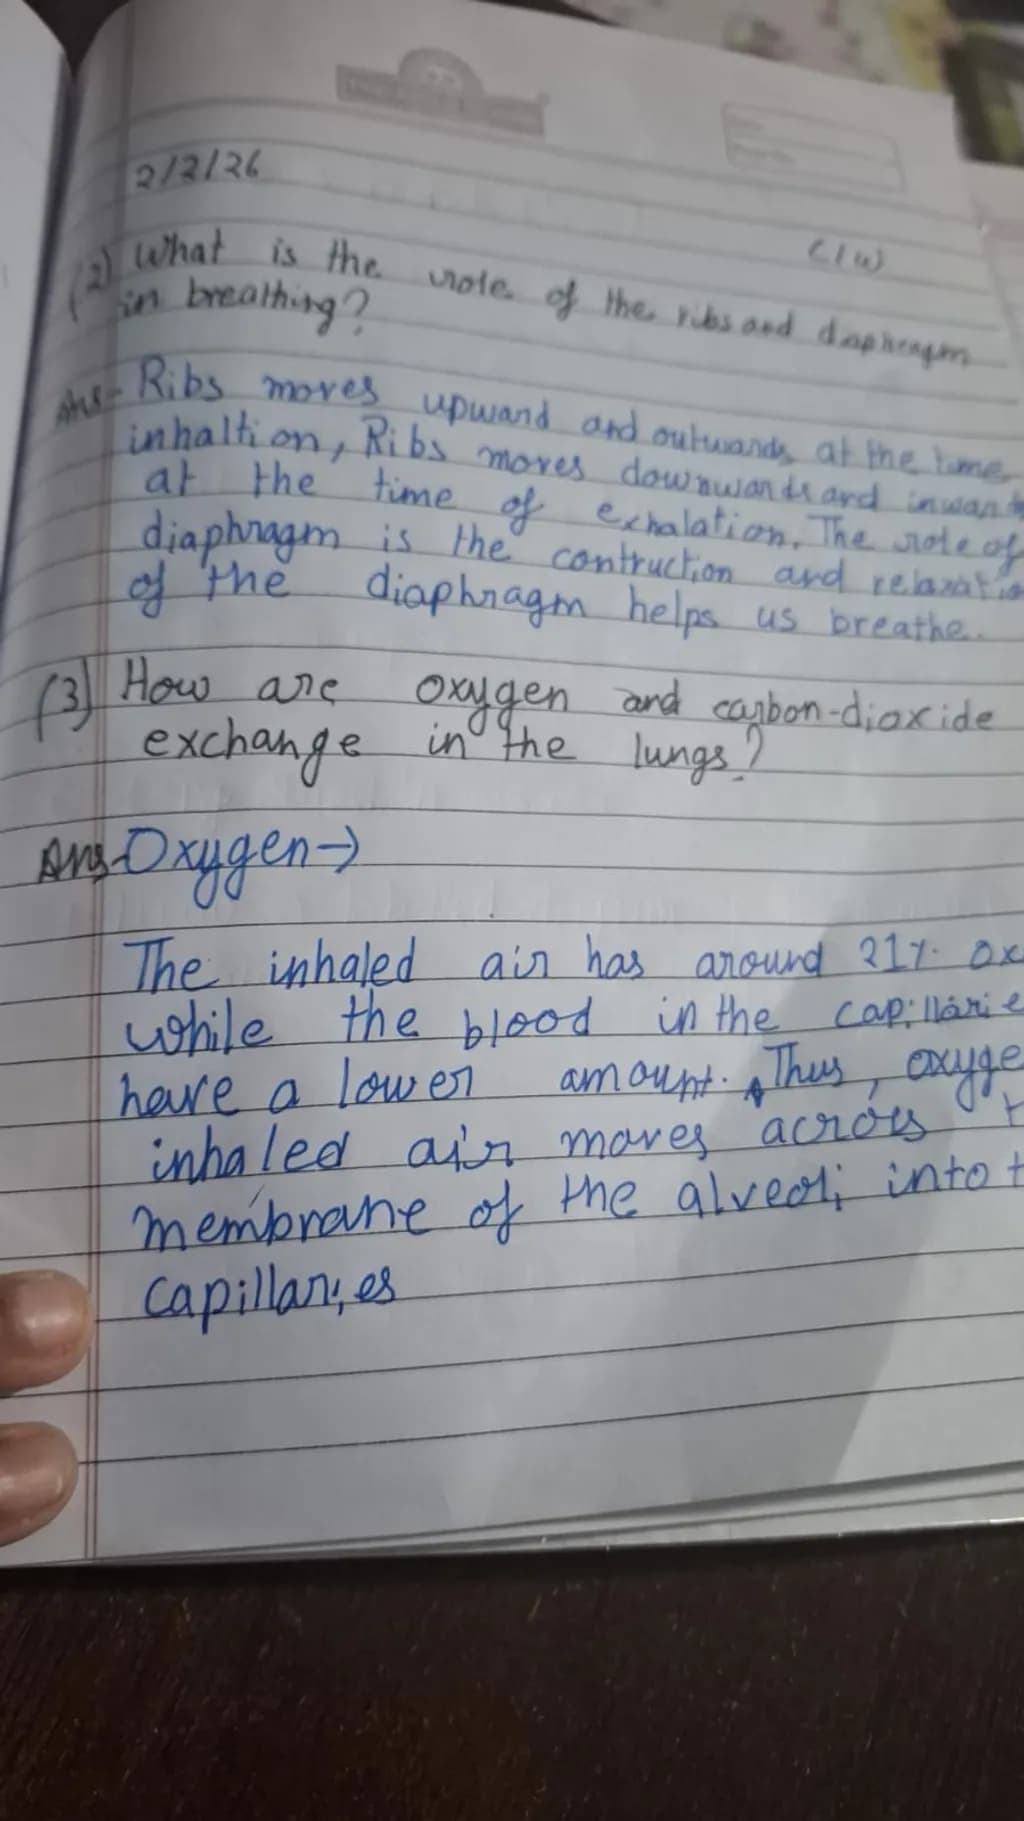 2/2/26
(1w)
(2) What is the role of the ribs and diaphragm
in breathing?
Ans- Ribs moves upward and outwards at the time
inhaltion, Ribs moves downwards and inwards
at the time of exhalation. The role of
diaphragm is the contruction and relaxatio
of the diaphragm helps us breathe.
(3) How are oxygen and carbon-dioxide
exchange in the lungs?
Ans- Oxygen→
The inhaled air has around 21% ox
while the blood in the capillarie
have a lower amount. Thus, oxyge
inhaled air moves across t
membrane of the alveoli into t
capillaries